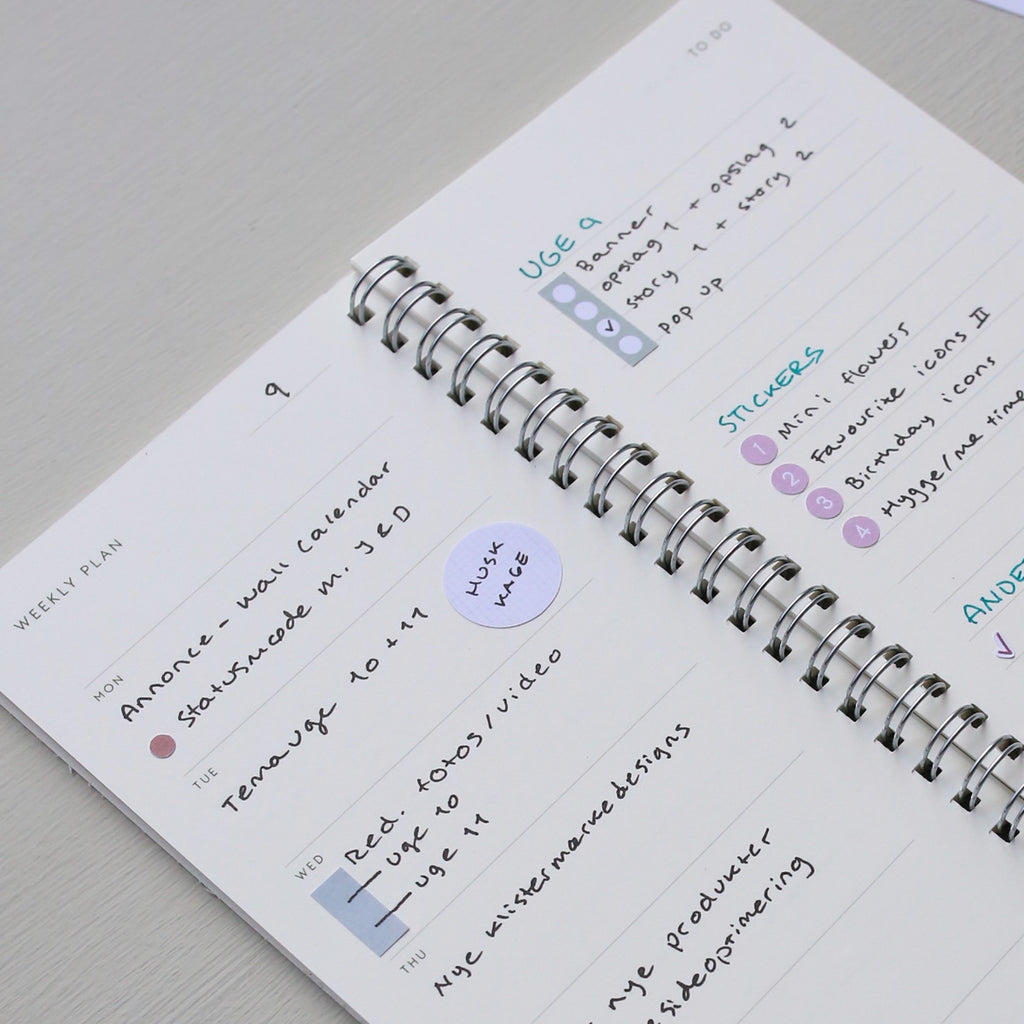 WEEKLY PLAN
9
MON
Annonce - Wall calendar
Statusmøde m. J & D
TUE
Temauge 10 + 11
HUSK
KAGE
WED
Red. fotos / video
— uge 10
— uge 11
THU
Nye klistermærkedesigns
nye produkter
sideoprimering
TO DO
UGE 9
Banner
opslag 1 + opslag 2
✓ story 1 + story 2
Pop up
STICKERS
1 Mini flowers
2 Favourite icons II
3 Birthday icons
4 Hygge/me time
ANDE
✓